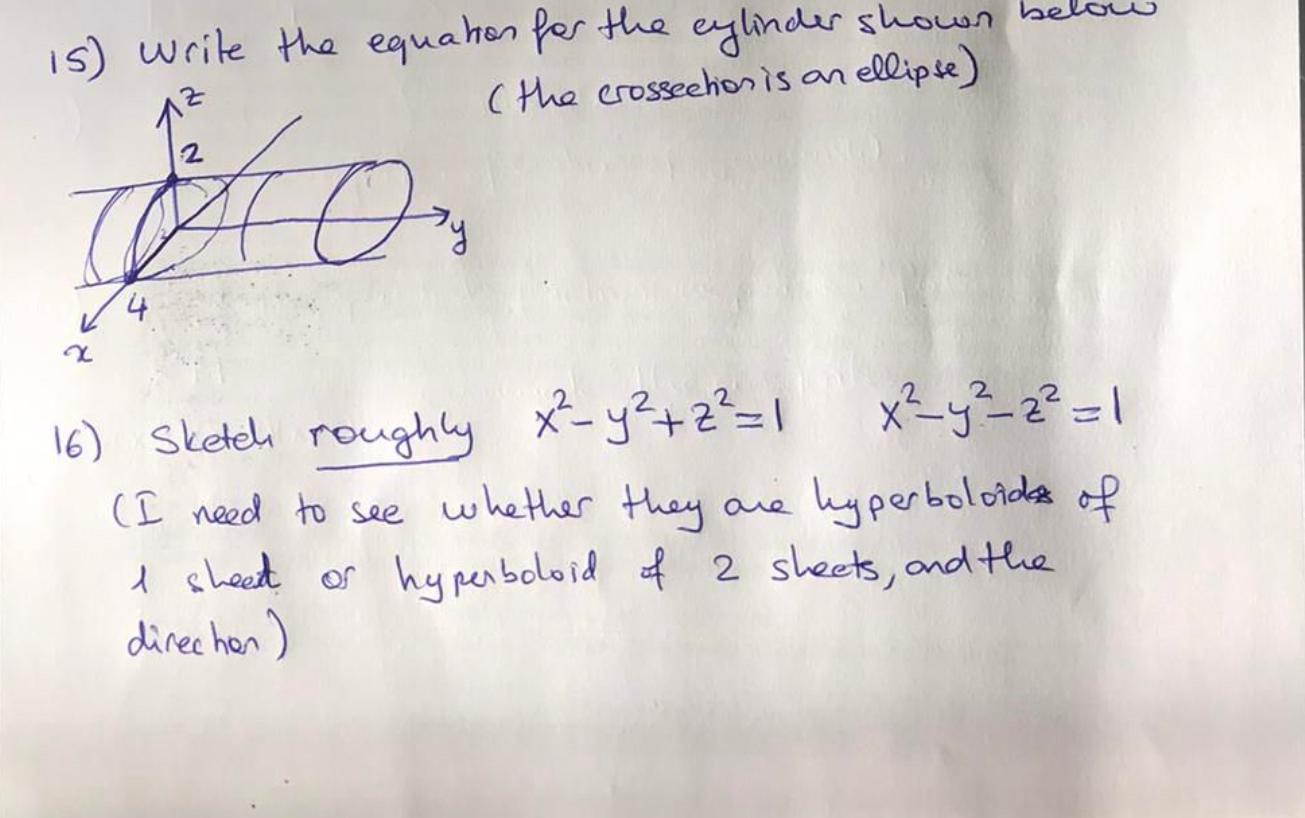 15) Write the equation for the cylinder shown below
(the crossection is an ellipse)
z
2
y
4
x
16) Sketch roughly x²-y²+z²=1 x²-y²-z²=1
(I need to see whether they are hyperboloids of
1 sheet or hyperboloid of 2 sheets, and the
direction)